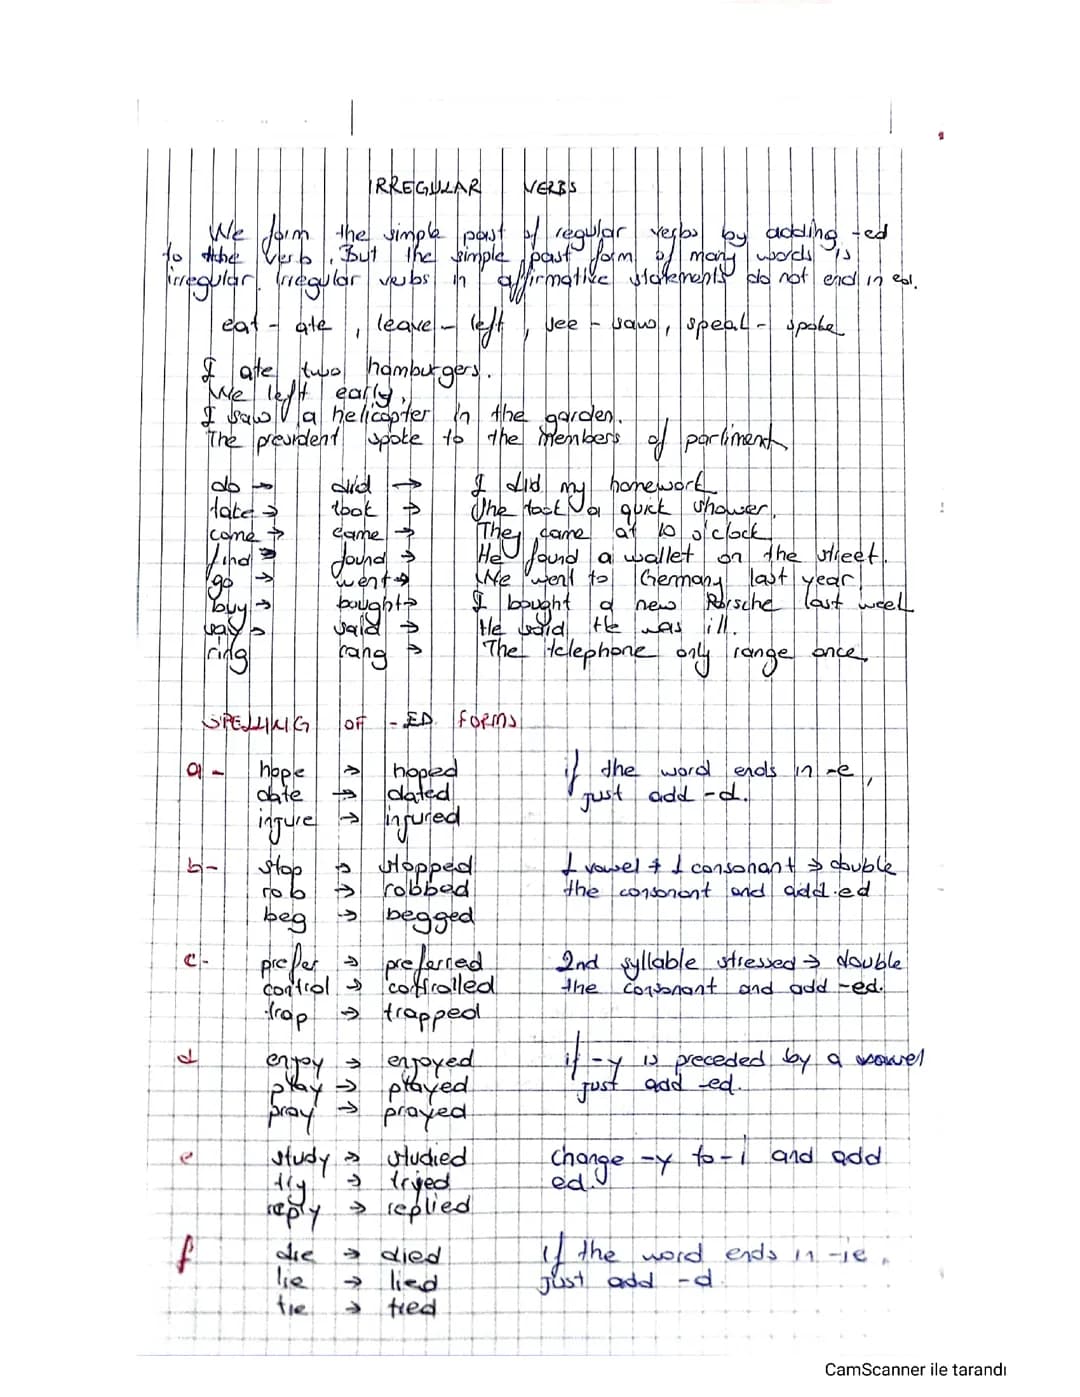 IRREGULAR VERBS
We form the simple past of regular verbs by adding -ed
to the verb. But the simple past form of many words is
irregular. Irregular verbs in affirmative statements do not end in ed.
eat - ate, leave - left, see - saw, speak - spoke
I ate two hamburgers.
We left early.
I saw a helicopter in the garden.
The president spoke to the members of parliment
do → did → I did my homework
take → took → She took a quick shower.
come → came → They came at 10 o'clock
find → found → He found a wallet on the street.
go → went → We went to Germany last year
buy → bought → I bought a new Porsche last week
say → said → He said He was ill.
ring rang → The telephone only range once.
SPELLING OF -ED FORMS
a - hope → hoped if the word ends in -e,
date → dated just add -d.
injure → injured
b- stop → stopped 1 vowel + 1 consonant → double
rob → robbed the consonant and add.ed
beg → begged
c- prefer → preferred 2nd syllable stressed → double
control → controlled the consonant and add -ed.
trap → trapped
d enjoy → enjoyed if -y is preceded by a vowel
play → played just add -ed.
pray → prayed
e study → studied change -y to -i and add
try → tryed ed.
reply → replied
f die → died if the word ends in -ie,
lie → lied just add -d.
tie → tied
CamScanner ile tarandı